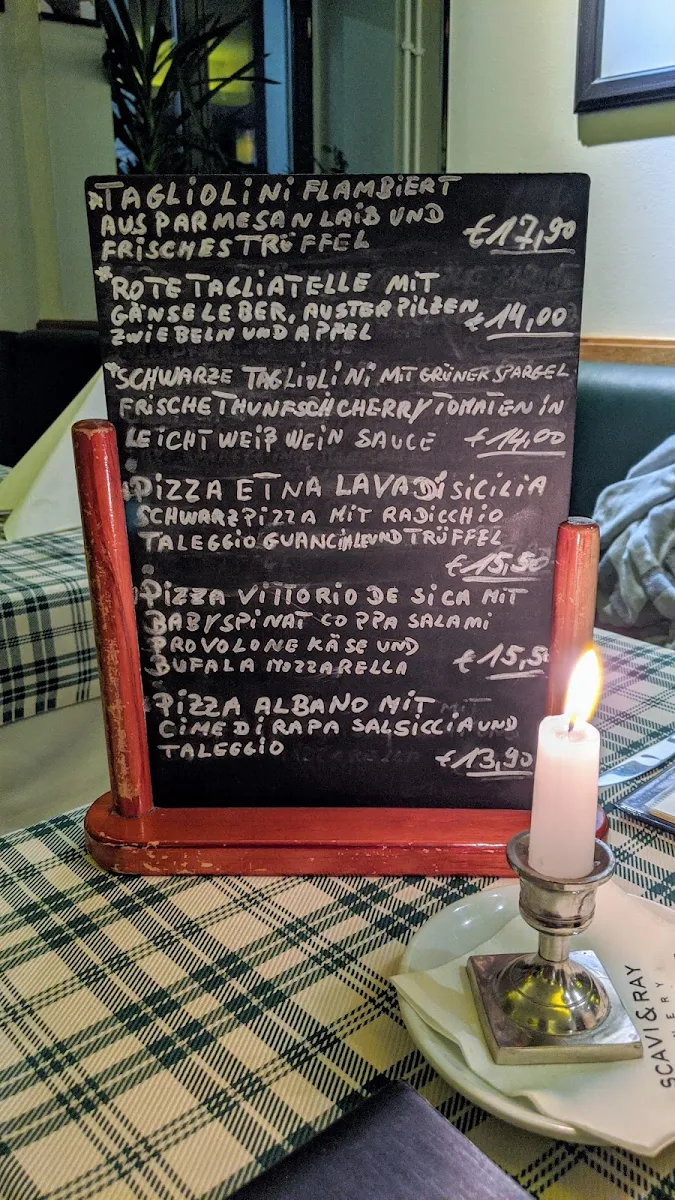 *TAGLIOLINI FLAMBIERT
AUS PARMESAN LAIB UND
FRISCHES TRÜFFEL
€17,90
*ROTE TAGLIATELLE MIT
GÄNSELEBER, AUSTERPILZEN
ZWIEBELN UND APFEL
€14,00
*SCHWARZE TAGLIOLINI MIT GRÜNER SPARGEL
FRISCHE THUNFSCH CHERRYTOMATEN IN
LEICHT WEIß WEIN SAUCE
€14,00
PIZZA ETNA LAVA DI SICILIA
SCHWARZPIZZA MIT RADICCHIO
TALEGGIO GUANCIALE UND TRÜFFEL
€15,50
PIZZA VITTORIO DE SICA MIT
BABYSPINAT COPPA SALAMI
PROVOLONE KÄSE UND
BUFALA MOZZARELLA
€15,50
PIZZA ALBANO MIT
CIME DI RAPA SALSICCIA UND
TALEGGIO
€13,90
SCAVI & RAY